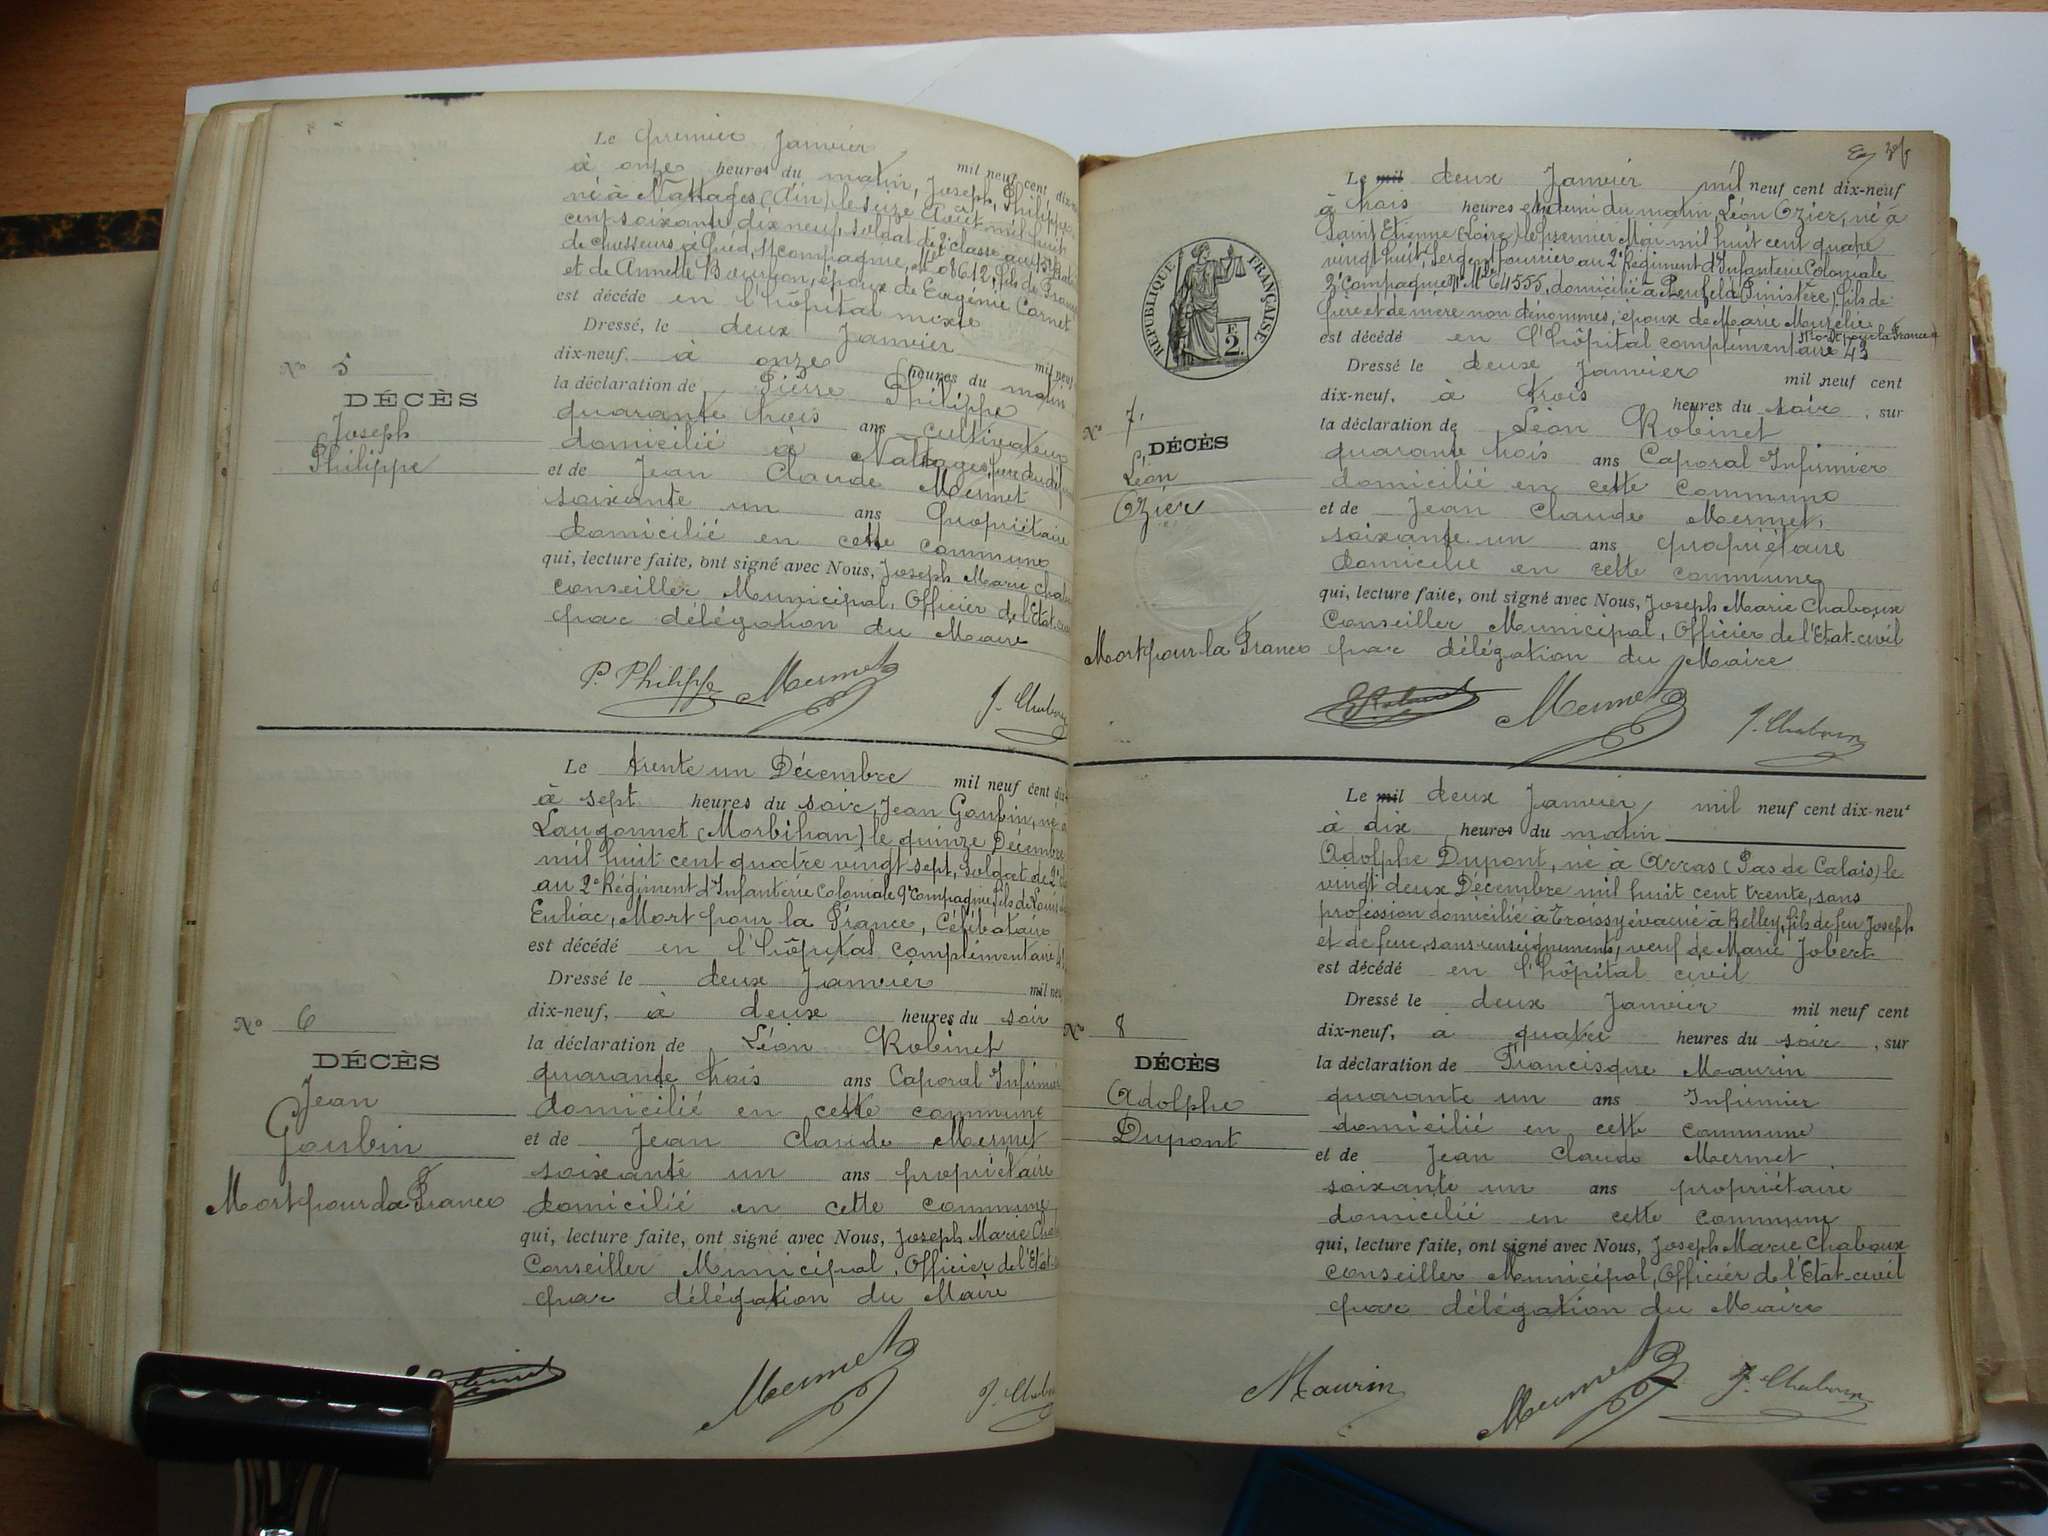 Le premier Janvier mil neuf cent dix-
à onze heures du matin, Joseph, Philippe
né à Nattages (Ain) le seize Août mil huit
cent soixante dix neuf, soldat de 2e classe au 13e
de chasseurs à pied, 11e compagnie, Mle 08612, fils de
et de Annette Bourbon, époux de Eugénie Cornet
est décédé en l'hôpital mixte
Dressé, le deux Janvier mil neuf
dix-neuf. à onze heures du matin
N° 5
la déclaration de Pierre Philippe
DÉCÈS
quarante trois ans cultivateur
Joseph
domicilié à Nattages, frère du
Philippe
et de Jean Claude Mermet
soixante un ans propriétaire
domicilié en cette commune
qui, lecture faite, ont signé avec Nous, Joseph Marie
conseiller Municipal, Officier de l'Etat-
par délégation du Maire
P. Philippe Mermet J. Chaboux
Le trente un Décembre mil neuf cent
à sept heures du soir, Jean Goubin, né à
Langonnet (Morbihan) le quinze Décembre
mil huit cent quatre vingt sept, soldat de 2e
au 2e Régiment d'Infanterie Coloniale 9e Compagnie, fils de Louis
Enliac, Mort pour la France, Célibataire
est décédé en l'hôpital complémentaire
Dressé le deux Janvier
dix-neuf, à deux heures du soir
N° 6
la déclaration de Léon Robinet
DÉCÈS
quarante trois ans Caporal Infirmier
Jean
domicilié en cette commune
Goubin
et de Jean Claude Mermet
soixante un ans propriétaire
Mort pour la France
domicilié en cette commune
qui, lecture faite, ont signé avec Nous, Joseph Marie
Conseiller Municipal, Officier de l'Etat-
par délégation du Maire
Robinet Mermet J. Chaboux
Le mil deux Janvier mil neuf cent dix-neuf
à trois heures et demi du matin, Léon Ozier, né à
Saint Etienne (Loire) le premier Mai mil huit cent quatre
vingt huit, Sergent fourrier au 2e Régiment d'Infanterie Coloniale
3e Compagnie, N° Mle 64555, domicilié à Penfeld (Finistère), fils de
père et de mère non dénommés, époux de Marie Muzelie
Mort pour la France
est décédé en l'hôpital complémentaire 43
RÉPUBLIQUE FRANÇAISE
E
2.
Dressé le deux Janvier mil neuf cent
dix-neuf, à trois heures du soir, sur
N° 7
la déclaration de Léon Robinet
DÉCÈS
quarante trois ans Caporal Infirmier
Léon
domicilié en cette commune
Ozier
et de Jean Claude Mermet,
soixante un ans propriétaire
domicilié en cette commune
qui, lecture faite, ont signé avec Nous, Joseph Marie Chaboux
Conseiller Municipal, Officier de l'Etat-civil
Mort pour la France
par délégation du Maire
Robinet Mermet J. Chaboux
Le mil deux Janvier mil neuf cent dix-neuf
à dix heures du matin
Adolphe Dupont, né à Arras (Pas de Calais) le
vingt deux Décembre mil huit cent trente, sans
profession domicilié à Troissy évacué à Belley, fils de feu Joseph
et de feue, sans renseignements, veuf de Marie Jobert
est décédé en l'hôpital civil
Dressé le deux Janvier mil neuf cent
dix-neuf, à quatre heures du soir, sur
N° 8
la déclaration de Francisque Maurin
DÉCÈS
quarante un ans Infirmier
Adolphe
domicilié en cette commune
Dupont
et de Jean Claude Mermet
soixante un ans propriétaire
domicilié en cette commune
qui, lecture faite, ont signé avec Nous, Joseph Marie Chaboux
Conseiller Municipal, Officier de l'Etat-civil
par délégation du Maire
Maurin Mermet J. Chaboux